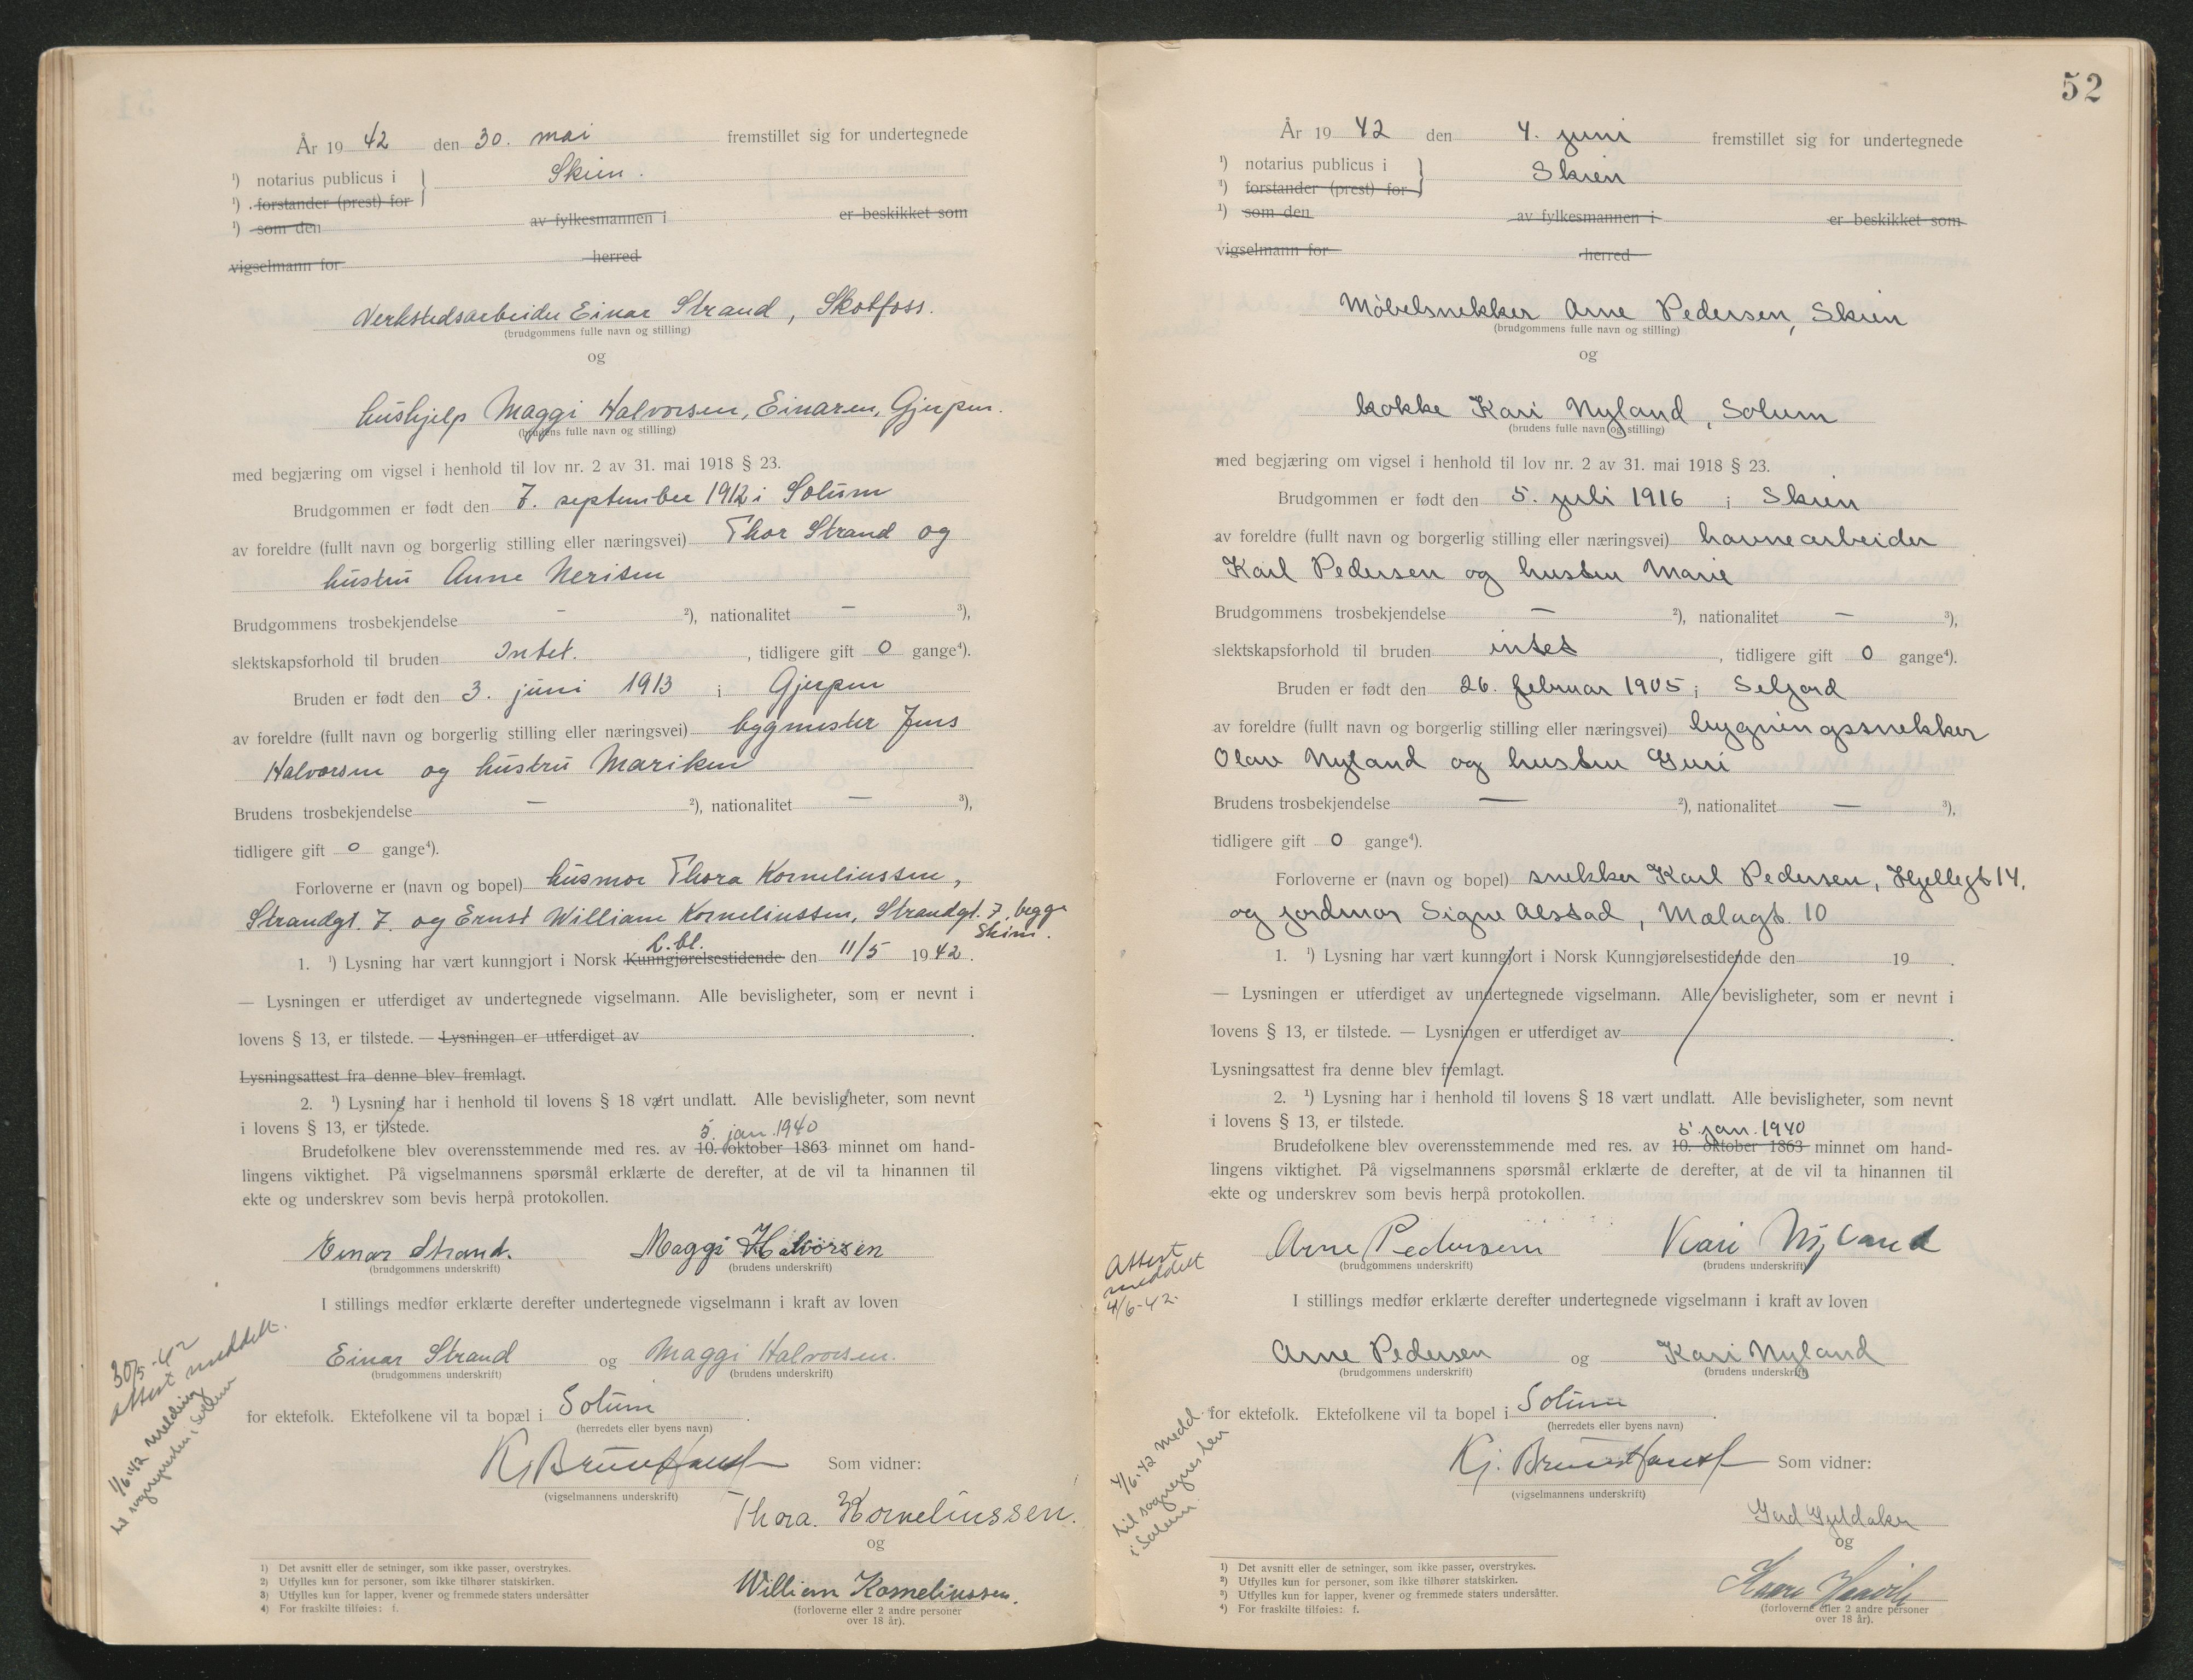 År 19 42 den 30. mai fremstillet sig for undertegnede
¹) notarius publicus i } Skien.
¹) forstander (prest) for
¹) som den av fylkesmannen i er beskikket som
vigselmann for herred
Verkstedsarbeider Einar Strand, Skotfoss.
(brudgommens fulle navn og stilling)
og
hushjelp Maggi Halvorsen, Einaren, Gjerpen.
(brudens fulle navn og stilling)
med begjæring om vigsel i henhold til lov nr. 2 av 31. mai 1918 § 23.
Brudgommen er født den 7. september 1912 i Solum
av foreldre (fullt navn og borgerlig stilling eller næringsvei) Thor Strand og
hustru Anne Nerisen
Brudgommens trosbekjendelse - ²), nationalitet — ³),
slektskapsforhold til bruden Intet. , tidligere gift 0 gange⁴).
Bruden er født den 3. juni 1913 i Gjerpen
av foreldre (fullt navn og borgerlig stilling eller næringsvei) byggmester Jens
Halvorsen og hustru Mariken
Brudens trosbekjendelse — ²), nationalitet — ³),
tidligere gift 0 gange⁴).
Forloverne er (navn og bopel) husmor Thora Korneliussen,
Strandgt. 7. og Ernst William Korneliussen, Strandgt. 7, begge
Skien.
L.bl.
1. ¹) Lysning har vært kunngjort i Norsk Kunngjørelsestidende den 11/5 1942.
— Lysningen er utferdiget av undertegnede vigselmann. Alle bevisligheter, som er nevnt i
lovens § 13, er tilstede. — Lysningen er utferdiget av .
Lysningsattest fra denne blev fremlagt.
2. ¹) Lysning har i henhold til lovens § 18 vært undlatt. Alle bevisligheter, som nevnt
i lovens § 13, er tilstede.
5. jan. 1940
Brudefolkene blev overensstemmende med res. av 10. oktober 1863 minnet om hand-
lingens viktighet. På vigselmannens spørsmål erklærte de derefter, at de vil ta hinannen til
ekte og underskrev som bevis herpå protokollen.
Einar Strand. Maggi Halvorsen
(brudgommens underskrift) (brudens underskrift)
I stillings medfør erklærte derefter undertegnede vigselmann i kraft av loven
Einar Strand og Maggi Halvorsen.
(brudgommens underskrift) (brudens underskrift)
for ektefolk. Ektefolkene vil ta bopæl i Solum .
(herredets eller byens navn)
Som vidner:
(vigselmannens underskrift)
Thora. Korneliussen.
og
William Korneliussen.
(forloverne eller 2 andre personer
over 18 år).
30/5-42
attest meddelt.
1/6-42 melding
til sognepresten i Solum
1) Det avsnitt eller de setninger, som ikke passer, overstrykes.
2) Utfylles kun for personer, som ikke tilhører statskirken.
3) Utfylles kun for lapper, kvener og fremmede staters undersåtter
4) For fraskilte tilføies: f.
52
År 19 42 den 4. juni fremstillet sig for undertegnede
¹) notarius publicus i } Skien
¹) forstander (prest) for
¹) som den av fylkesmannen i er beskikket som
vigselmann for herred
Møbelsnekker Arne Pedersen, Skien
(brudgommens fulle navn og stilling)
og
kokke Kari Nyland, Solum
(brudens fulle navn og stilling)
med begjæring om vigsel i henhold til lov nr. 2 av 31. mai 1918 § 23.
Brudgommen er født den 5. juli 1916 i Skien
av foreldre (fullt navn og borgerlig stilling eller næringsvei) havnearbeider
Karl Pedersen og hustru Marie
Brudgommens trosbekjendelse — ²), nationalitet — ³),
slektskapsforhold til bruden intet , tidligere gift 0 gange⁴).
Bruden er født den 26. februar 1905 i Seljord
av foreldre (fullt navn og borgerlig stilling eller næringsvei) bygningssnekker
Olav Nyland og hustru Guri
Brudens trosbekjendelse — ²), nationalitet — ³),
tidligere gift 0 gange⁴).
Forloverne er (navn og bopel) snekker Karl Pedersen, Hjellegt 14,
og jordmor Signe Alstad, Mælagt. 10
1. ¹) Lysning har vært kunngjort i Norsk Kunngjørelsestidende den 19 .
— Lysningen er utferdiget av undertegnede vigselmann. Alle bevisligheter, som er nevnt i
lovens § 13, er tilstede. — Lysningen er utferdiget av .
Lysningsattest fra denne blev fremlagt.
2. ¹) Lysning har i henhold til lovens § 18 vært undlatt. Alle bevisligheter, som nevnt
i lovens § 13, er tilstede.
5. jan. 1940
Brudefolkene blev overensstemmende med res. av 10. oktober 1863 minnet om hand-
lingens viktighet. På vigselmannens spørsmål erklærte de derefter, at de vil ta hinannen til
ekte og underskrev som bevis herpå protokollen.
Arne Pedersen Kari Nyland
(brudgommens underskrift) (brudens underskrift)
Attest
meddelt
4/6-42.
I stillings medfør erklærte derefter undertegnede vigselmann i kraft av loven
Arne Pedersen og Kari Nyland
(brudgommens underskrift) (brudens underskrift)
for ektefolk. Ektefolkene vil ta bopel i Solum .
(herredets eller byens navn)
Som vidner:
(vigselmannens underskrift)
og
(forloverne eller 2 andre personer
over 18 år).
4/6-42 medd.
til sognepresten
i Solum.
1) Det avsnitt eller de setninger, som ikke passer, overstrykes.
2) Utfylles kun for personer, som ikke tilhører statskirken.
3) Utfylles kun for lapper, kvener og fremmede staters undersåtter.
4) For fraskilte tilføies: f.